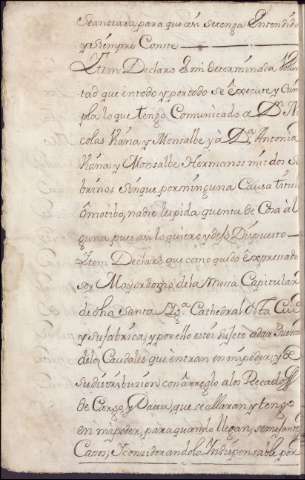 Se anotara, para que asi se tenga Entendido
y a siempre Conste
Ytem Declaro Es mi determinada volun
tad que en todo y por todo se Execute y Cum
pla lo que tengo Comunicado a Dn. Ni
colas Raña y Monsalbe y a Dn. Antonio
Raña y Monsalbe Hermanos mis dos So
brinos sin que por ninguna Causa titulo
ô motibo, nadie les pida quenta de Cosa al
guna pues asi lo quiero y dejo Dispuesto
Ytem Declaro que como queda Expresado
soy Mayordomo de la Mesa Capitular
de dha Santa Yga. Cathedral de esta Ciud
y su fabrica, y por ello estoi sujeto a dar Quenta
de los Caudales que entran en mi poder, y de
su distribuzion con arreglo a los Recados
de Cargo y Data, que se allaran, y tengo
en mi poder, para quando llegan, semejantes
Casos, Y considerandolo Indispensable por